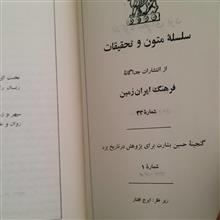 سلسلهٔ متون و تحقیقات
از انتشارات جداگانهٔ
فرهنگ ایران زمین
شمارهٔ ۳۳
گنجینهٔ حسین بشارت برای پژوهش در تاریخ یزد
شمارهٔ ۱
زیر نظر: ایرج افشار